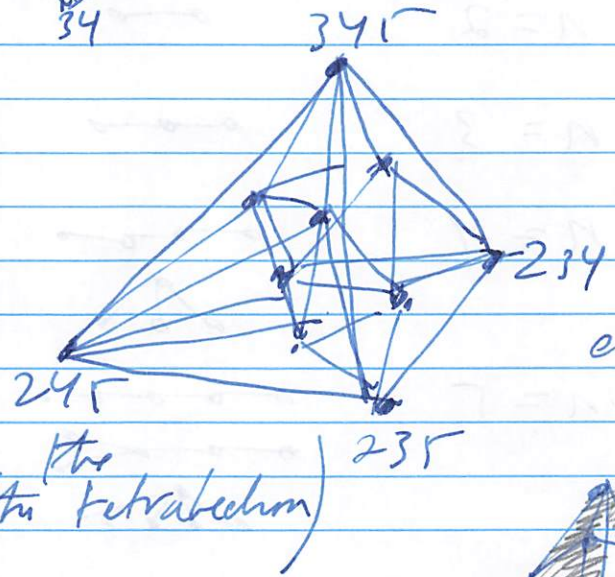 34
345
234
245
235
the
tetrahedron)